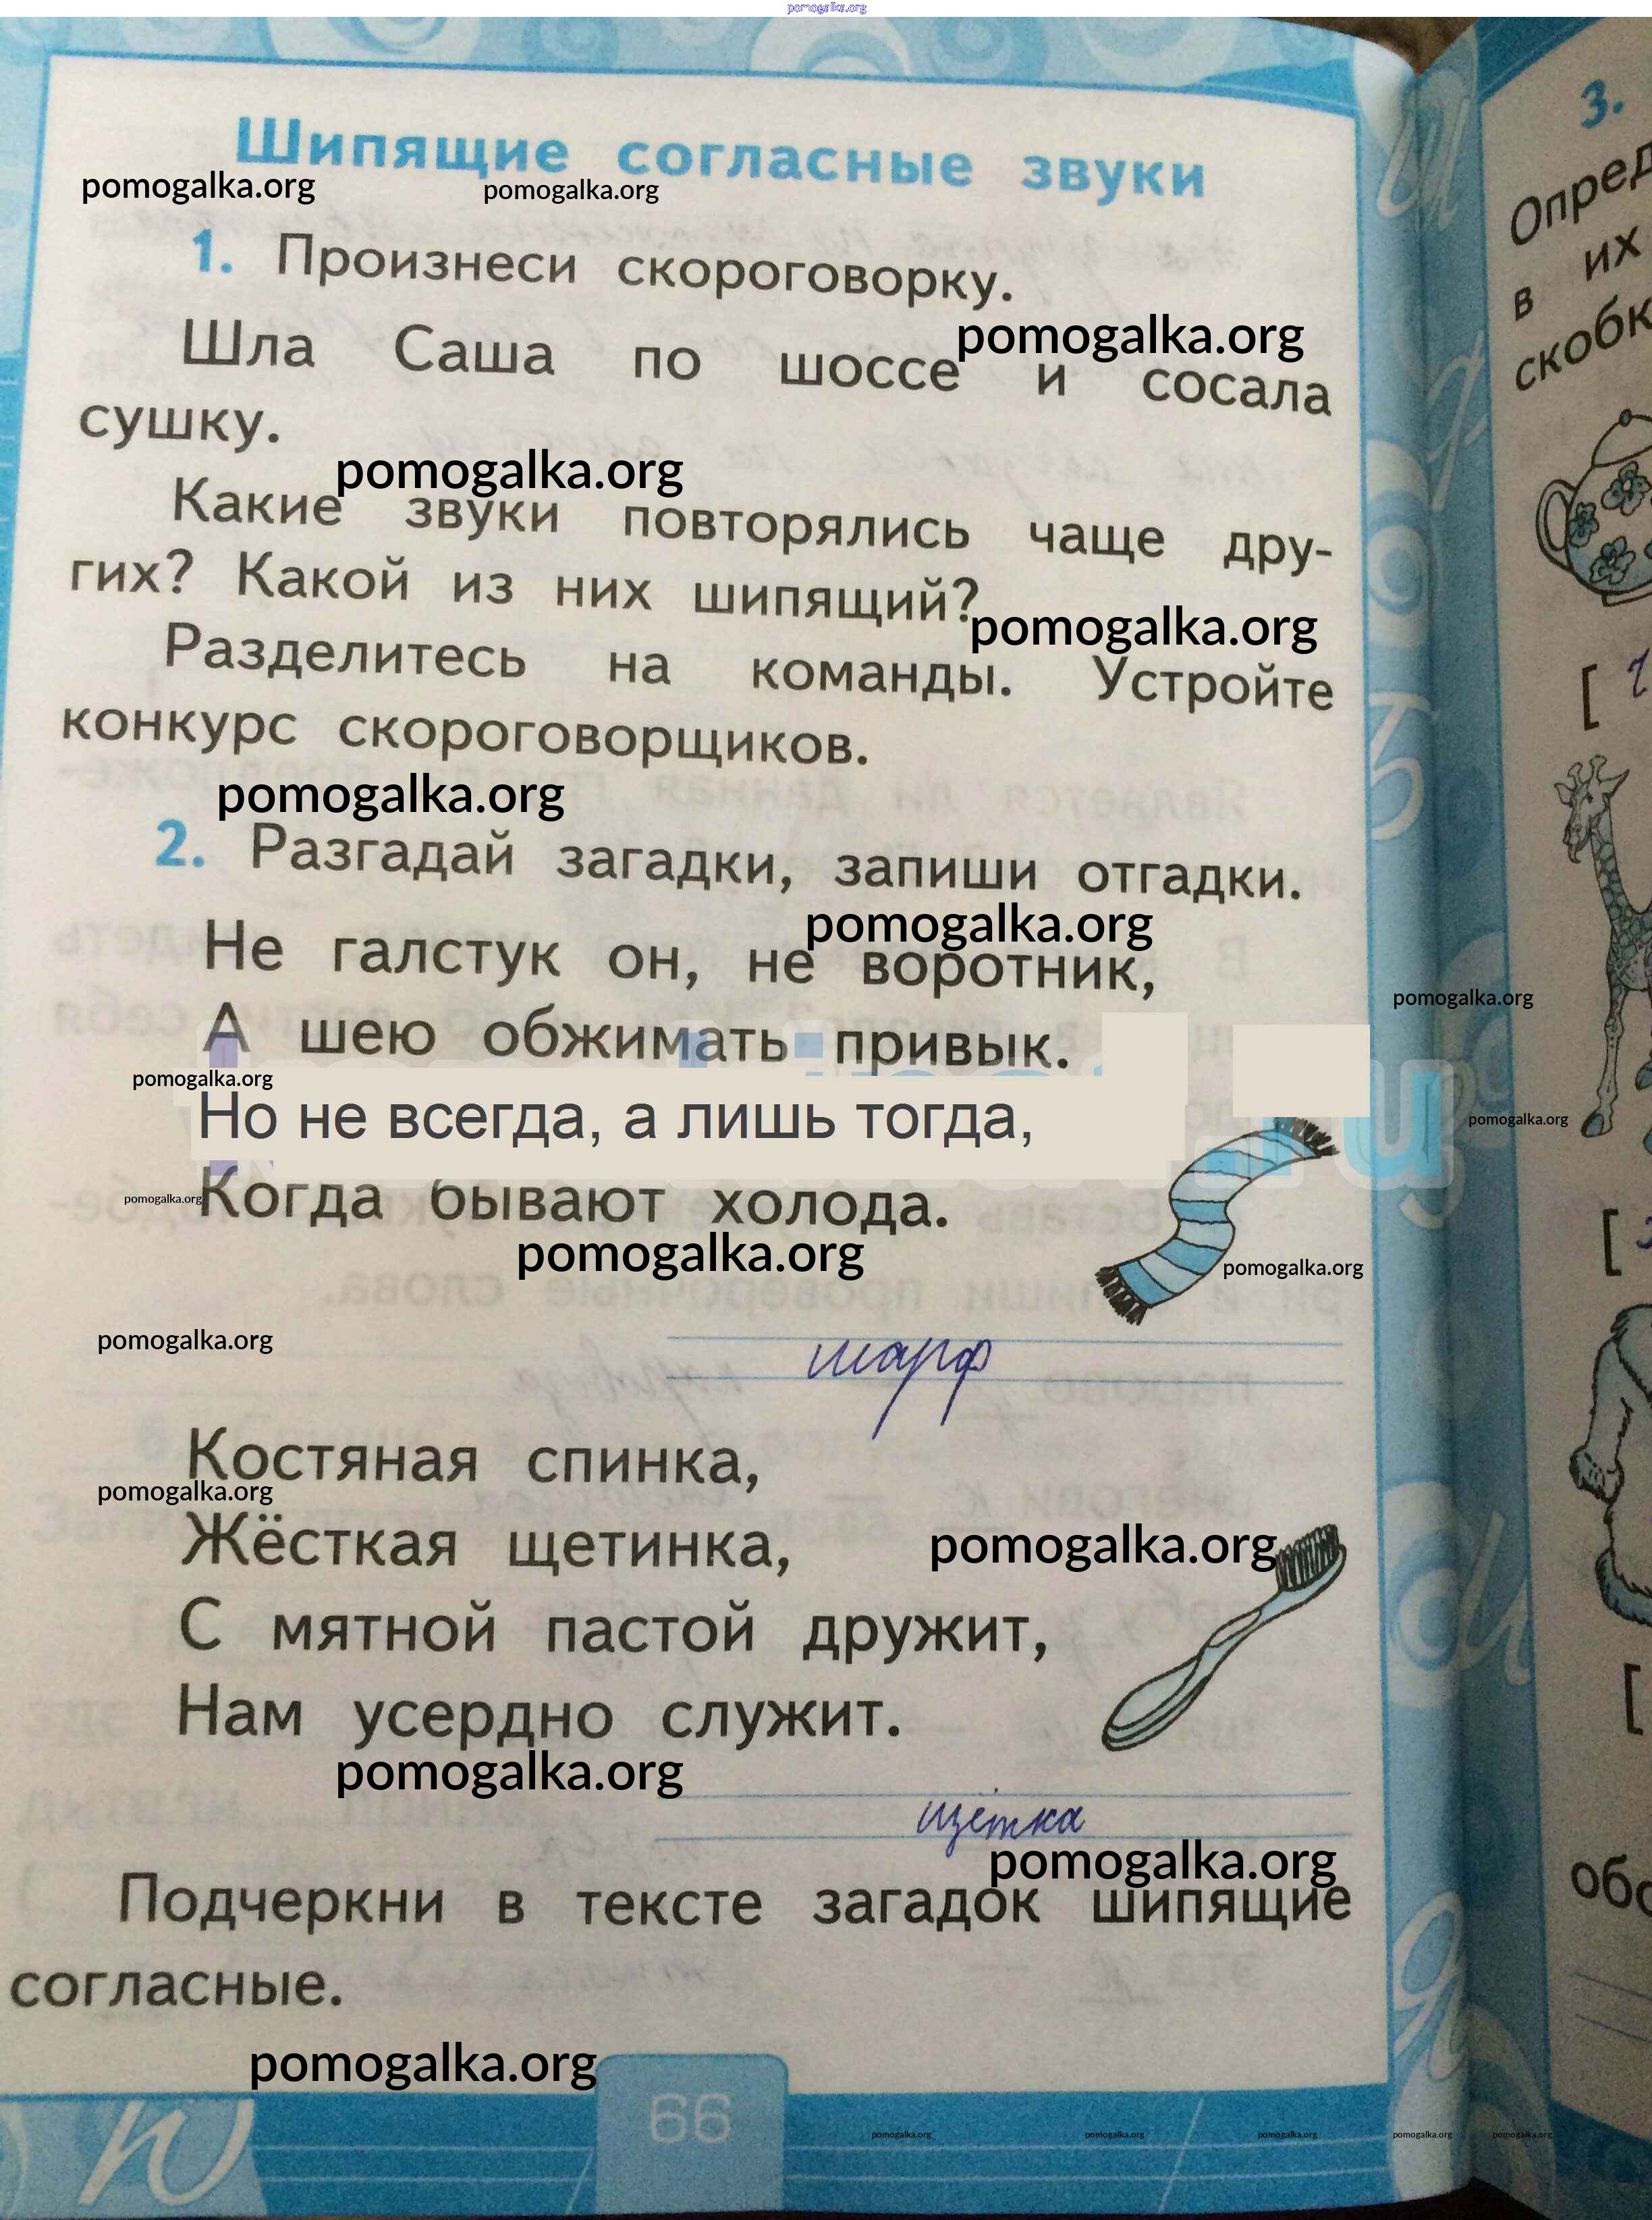 pomogalka.org
Шипящие согласные звуки
pomogalka.org pomogalka.org
1. Произнеси скороговорку.
pomogalka.org
Шла Саша по шоссе и сосала
сушку.
pomogalka.org
Какие звуки повторялись чаще дру-
гих? Какой из них шипящий?
pomogalka.org
Разделитесь на команды. Устройте
конкурс скороговорщиков.
pomogalka.org
2. Разгадай загадки, запиши отгадки.
pomogalka.org
Не галстук он, не воротник,
А шею обжимать привык.
pomogalka.org
Но не всегда, а лишь тогда,
pomogalka.org
Когда бывают холода.
pomogalka.org
pomogalka.org
pomogalka.org
шарф
Костяная спинка,
pomogalka.org
Жёсткая щетинка,
pomogalka.org
С мятной пастой дружит,
Нам усердно служит.
pomogalka.org
щётка
pomogalka.org
Подчеркни в тексте загадок шипящие
согласные.
pomogalka.org
66
pomogalka.org pomogalka.org pomogalka.org pomogalka.org pomogalka.org
3.
Опред
в их
скобк
pomogalka.org
pomogalka.org
.ru
[
[
[
обо